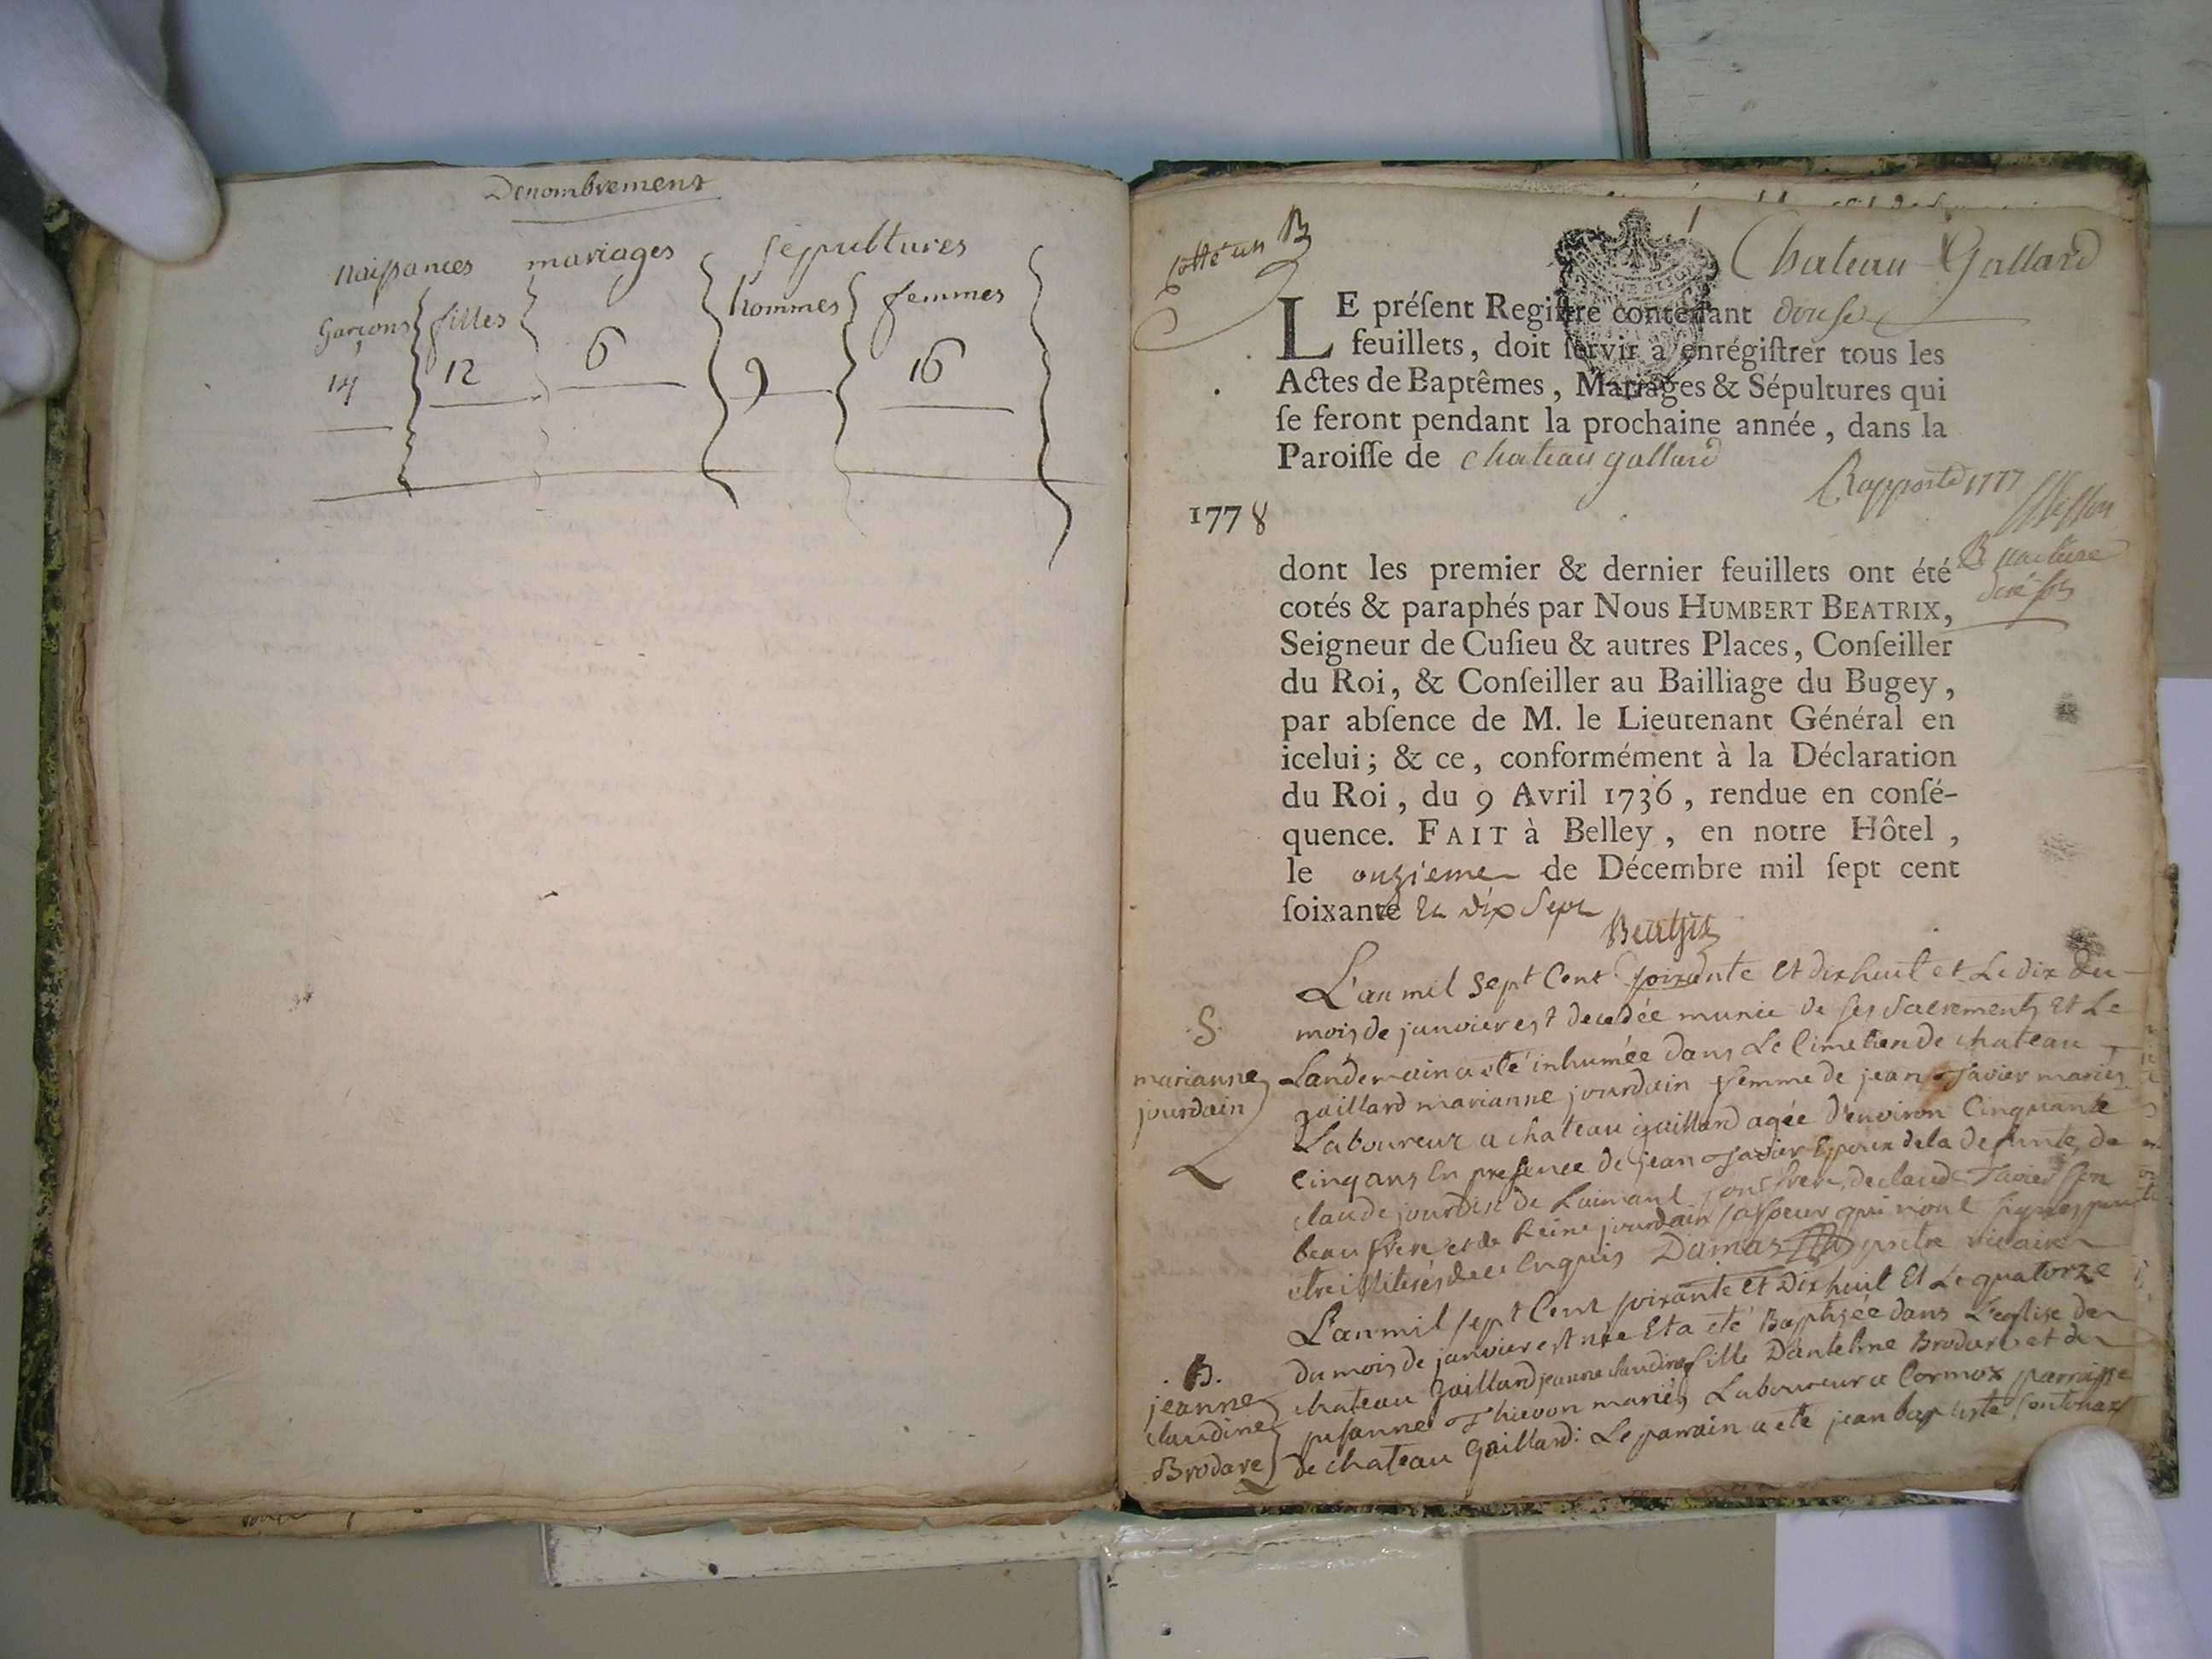 Denombrement
naissances mariages sepultures
Garçons filles hommes femmes
14 12 6 9 16
Cotté un B
1
Chateau Gallard
LE préſent Regiſtre contenant douse
feuillets, doit ſervir à enrégiſtrer tous les
Actes de Baptêmes, Mariages & Sépultures qui
ſe feront pendant la prochaine année, dans la
Paroiſſe de chateau gallard
Rapporté 1777
1778
dont les premier & dernier feuillets ont été
cotés & paraphés par Nous HUMBERT BEATRIX,
Seigneur de Cuſieu & autres Places, Conſeiller
du Roi, & Conſeiller au Bailliage du Bugey,
par abſence de M. le Lieutenant Général en
icelui; & ce, conformément à la Déclaration
du Roi, du 9 Avril 1736, rendue en conſé-
quence. FAIT à Belley, en notre Hôtel,
le onzieme de Décembre mil ſept cent
ſoixante et dix sept
Beatrix
S
marianne
jourdain
L'an mil sept Cent soixante et dix huit et Le dix du
mois de janvier est decedée munie de ses sacrements et Le
Landemain a été inhumée dans Le Cimetier de chateau
gaillard marianne jourdain femme de jean Tavier mariés
Laboureur a chateau gaillard agée d'environ Cinquante
cinq ans En presence de jean Tavier Epoux de la defunte, de
claude jourdin de Loimant son frere, de claude Tavier son
beau frere et de Reine jourdain sa soeur qui n'ont signes pour
etre illiterés de ce Enquis Damaz prêtre vicaire
B.
jeanne
claudine
Brodare
L'an mil sept Cent soixante et Dix huit Et Le quatorze
du mois de janvier est née Et a eté Baptisée dans L'eglise de
chateau Gaillard jeanne claudine fille D'antelme Brodare et de
susanne Thievon mariés Laboureur a Cormoz parroisse
de chateau Gaillard: Le parrain a eté jean baptiste